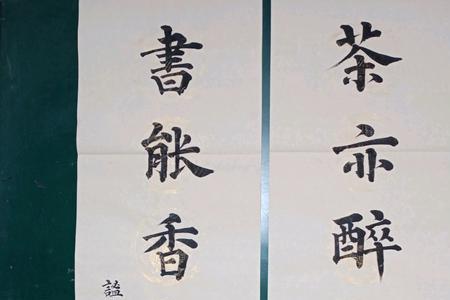 茶亦醉
書能香
謚